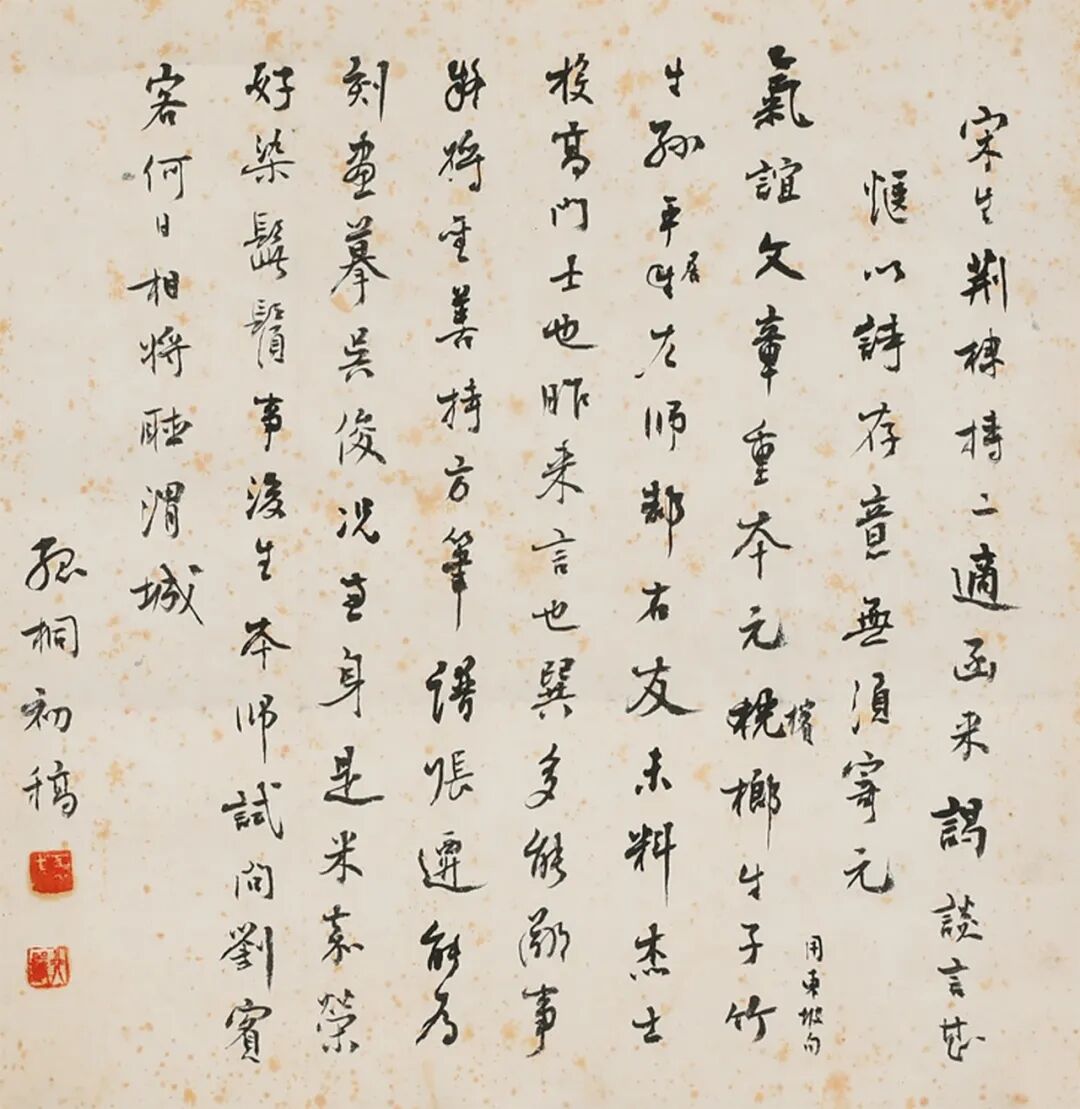 宋生荆棟持二適函来謁談言甚
愜以詩存意無須寄元
氣誼文章重本元桄榔生子竹
檳
用東坡句
生孫平生左师鄰右友未料杰士
居
投高門士也昨来言也巽多能溺事
將重善持方筆譜張遷能为
刻畫摹吴俊况直身是米嘉榮
好染髭鬚事後生本师試問劉賓
客何日相將聴渭城
孤桐初稿